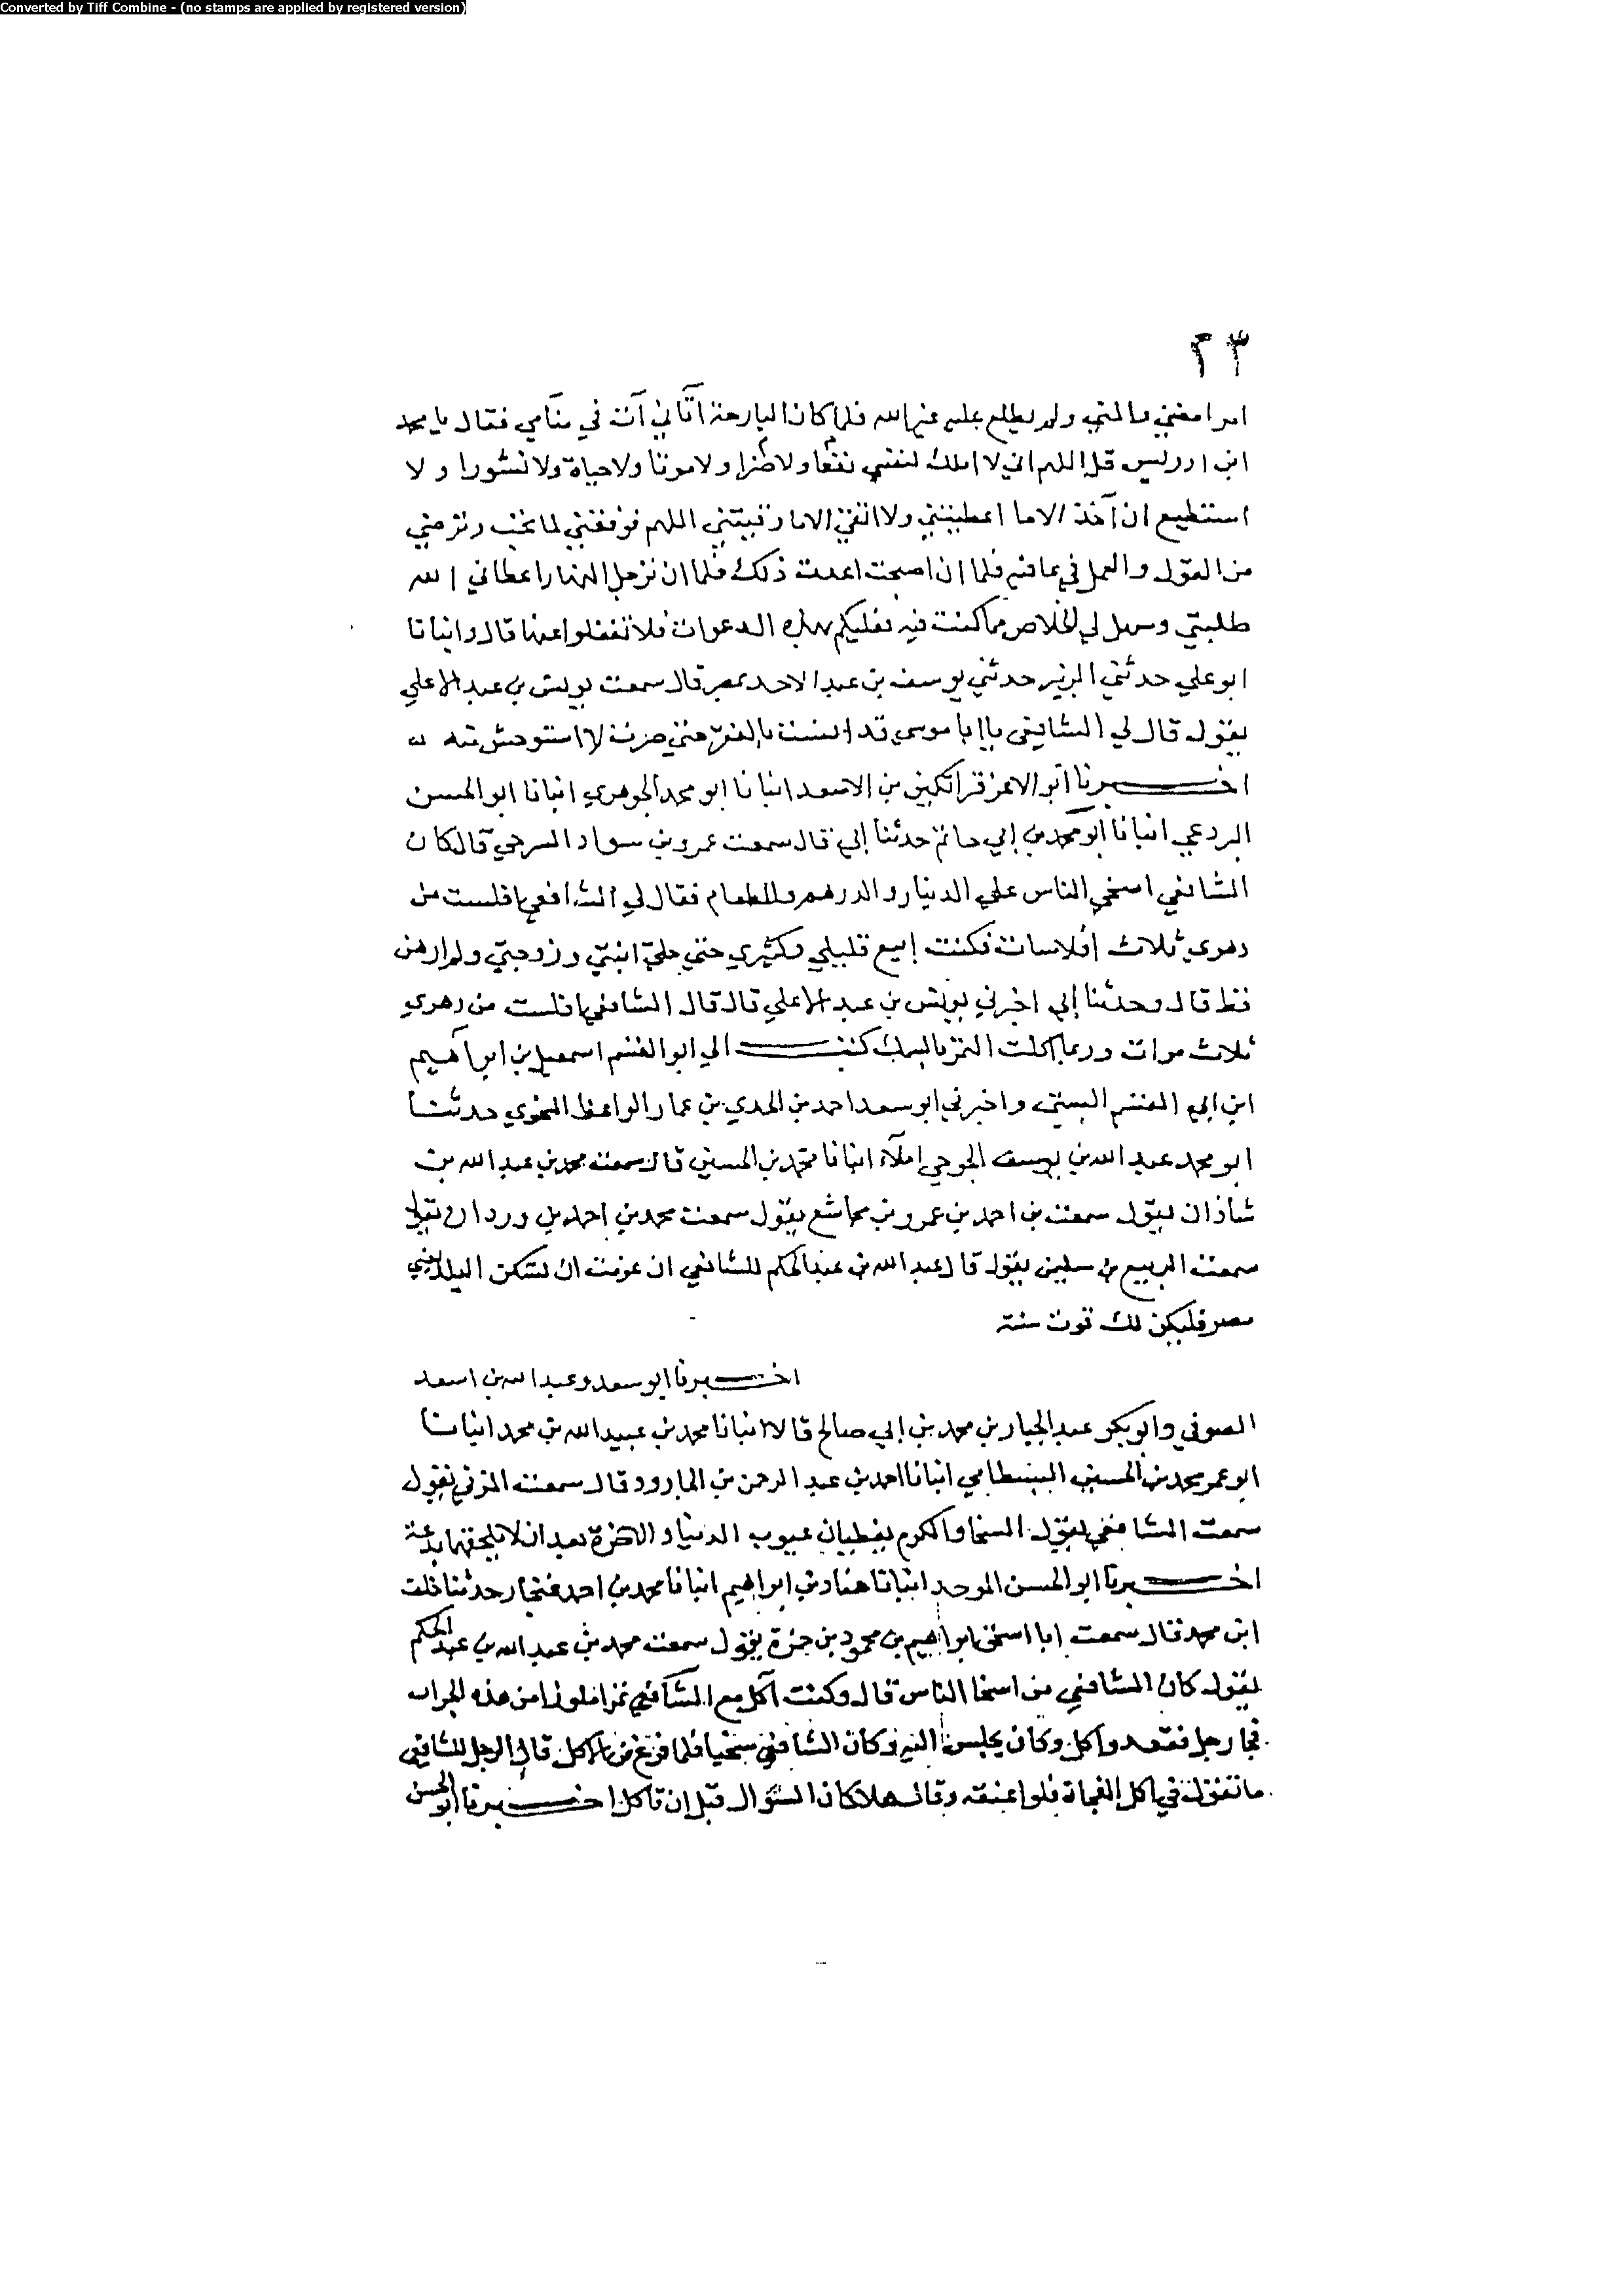 Converted by Tiff Combine - (no stamps are applied by registered version)
٢٣
امرا مضني والمني ولم يطلع عليه غير الله فلما كان البارحة اتاني آت في منامي فقال يا محمد
ابن ادريس قل اللهم اني لا املك لنفسي نفعا ولا ضرا ولا موتا ولا حياة ولا نشورا ولا
استطيع ان آخذ الا ما اعطيتني ولا اتقي الا ما وقيتني اللهم فوفقني لما تحب وترضي
من القول والعمل في عافية فلما ان اصبحت اعدت ذلك فلما ان ترحل النهار اعطاني الله
طلبتي وسهل لي الخلاص مما كنت فيه فعليكم بهذه الدعوات فلا تغفلوا عنها قال وانبانا
ابو علي حدثني الزبير حدثني يوسف بن عبد الاحد بمصر قال سمعت يونس بن عبد الاعلي
يقول قال لي الشافعي يا ابا موسي قد انست بالفقر حتي صرت لا استوحش منه
اخبرنا ابو الاعز قراتكين بن الاسعد انبانا ابو محمد الجوهري انبانا ابو الحسن
البردعي انبانا ابو محمد بن ابي حاتم حدثنا ابي قال سمعت عمرو بن سواد السرحي قال كان
الشافعي اسخي الناس علي الدينار والدرهم والطعام فقال لي الشافعي افلست من
دهري ثلاث افلاسات فكنت ابيع قليلي وكثيري حتي حلي ابنتي وزوجتي ولم ارهن
قط قال وحدثنا ابي اخبرني يونس بن عبد الاعلي قال قال الشافعي افلست من دهري
ثلاث مرات وربما اكلت التمر بالسمك كتب الي ابو القسم اسمعيل بن ابراهيم
ابن ابي القسم واخبرني ابو سعد احمد بن بن عمار الواعظ النحوي حدثنا
ابو محمد عبد الله بن يوسف املاء انبانا محمد بن الحسين قال سمعت محمد بن عبد الله بن
شاذان يقول سمعت بن احمد بن عمرو بن مجاشع يقول سمعت محمد بن احمد بن وردان يقول
سمعت الربيع بن سليمن يقول قال عبد الله بن عبد الحكم للشافعي ان عزمت ان تسكن البلد يعني
مصر فليكن لك قوت سنة
اخبرنا ابو سعد وعبد الله بن اسعد
الصوفي وابو بكر عبد الجبار بن محمد بن ابي صالح قالا انبانا محمد بن عبيد الله بن محمد انبانا
ابو عمر محمد بن الحسين البسطامي انبانا احمد بن عبد الرحمن بن الجارود قال سمعت المزني يقول
سمعت الشافعي يقول السخا والكرم يغطيان عيوب الدنيا والاخرة بعد ان لا يلحقهما بدعة
اخبرنا ابو الحسن الموحد انبانا هناد بن ابراهيم انبانا محمد بن احمد غنجار حدثنا خلف
ابن محمد قال سمعت ابا اسحق ابراهيم بن محمود بن حمزة يقول سمعت محمد بن عبد الله بن عبد الحكم
يقول كان الشافعي من اسخا الناس قال وكنت آكل مع الشافعي تمرا ملوزا من هذه الجراب
فجا رجل فقعد واكل وكان يجلس اليه وكان الشافعي سخيا فلما فرغ من الاكل قال الرجل للشافعي
ما تقول في اكل الفجاة فلوا عنقه وقال هلا كان السؤال قبل ان تاكل اخبرنا ابو الحسن